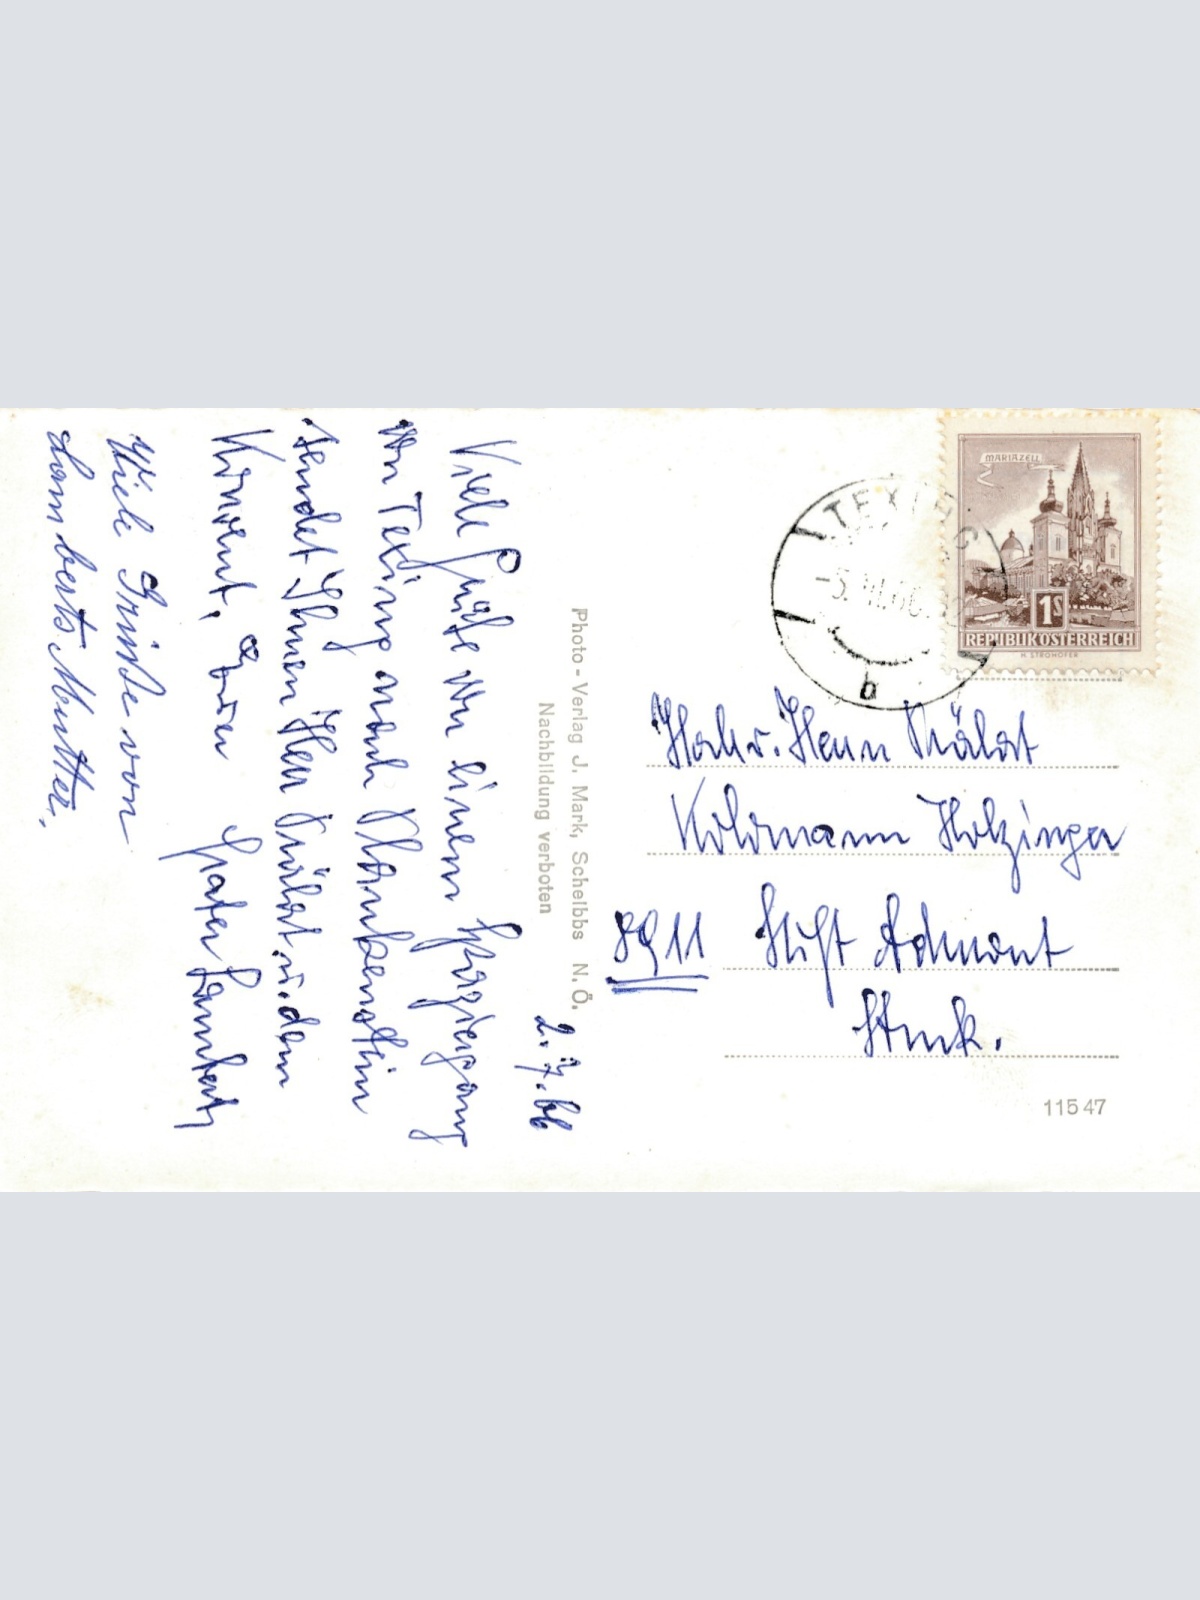 2.7.66
Viele Grüße von einem Spaziergang
von Texing nach Plankenstein
sendet Ihnen Herr Prälat u. dem
Konvent, Ihr Pater Lambert
Viele Grüße von
Lamberts Mutter.
Photo - Verlag J. Mark, Scheibbs N.Ö.
Nachbildung verboten
MARIAZELL
1S
REPUBLIK ÖSTERREICH
H. STROHOFER
TEXING
-5. VII. 66
b
Hochw. Herrn Prälat
Koloman Holzinger
8911 Stift Admont
Stmk.
115 47